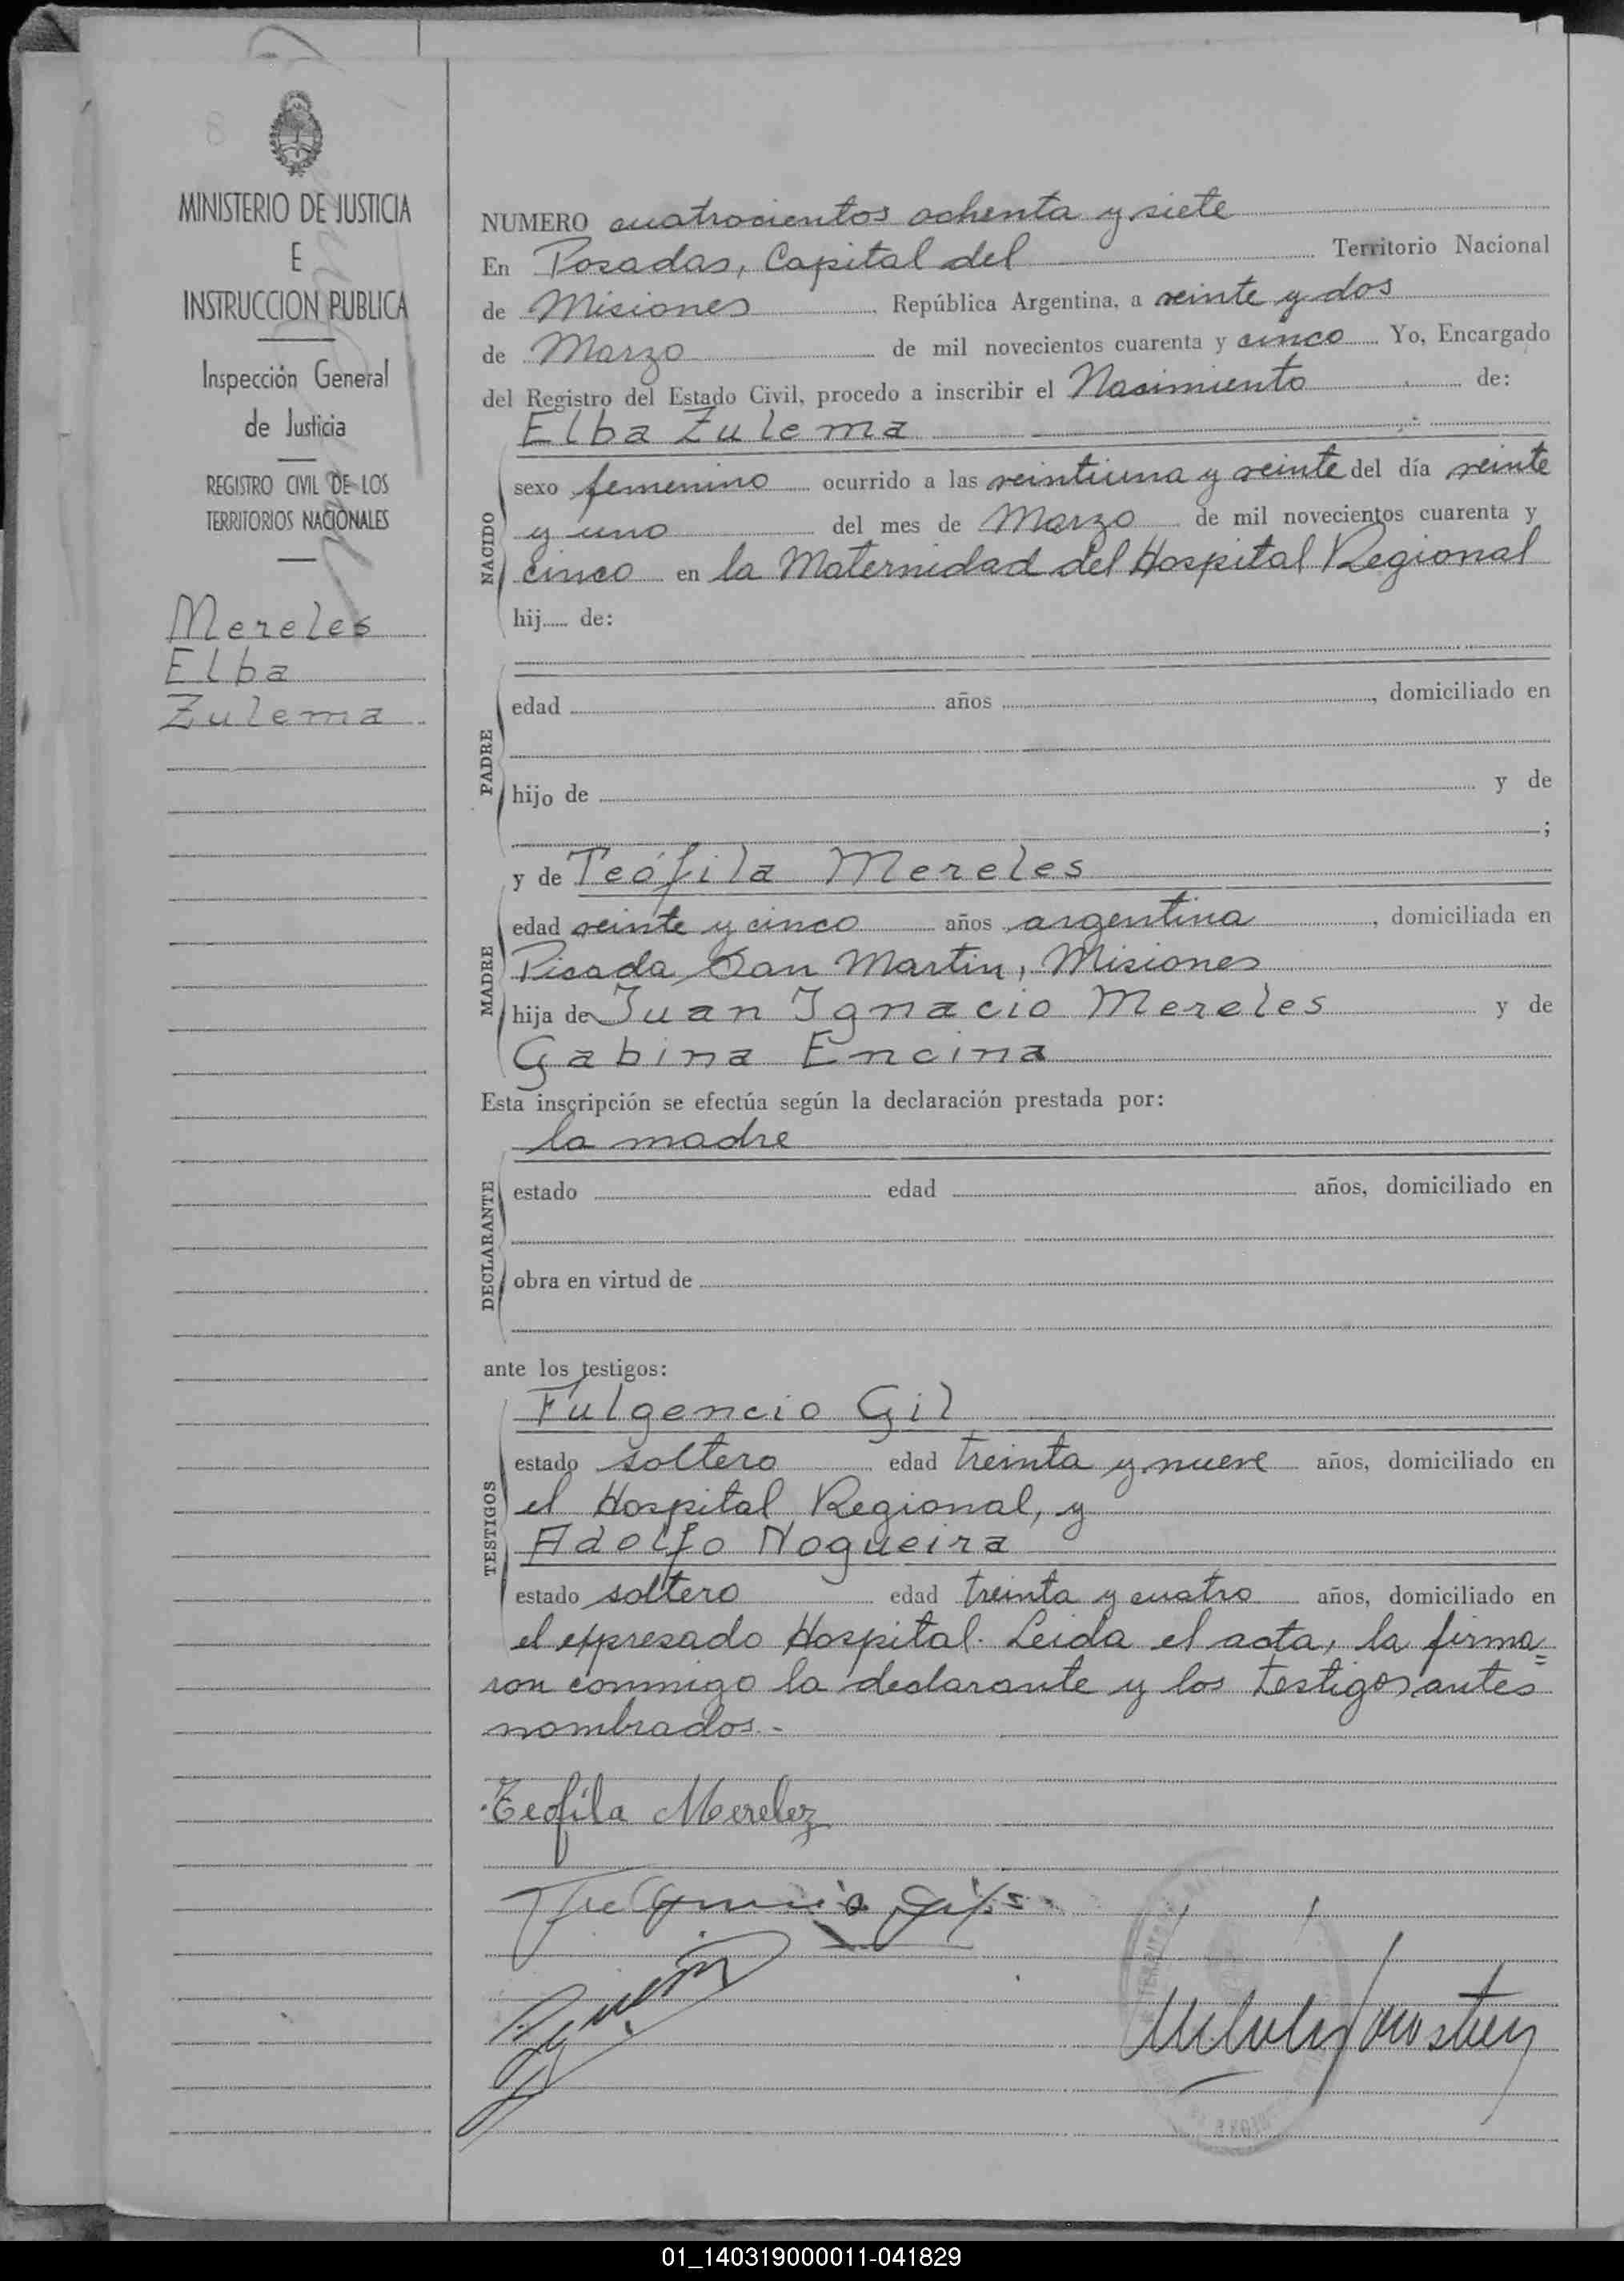 MINISTERIO DE JUSTICIA
E
INSTRUCCION PUBLICA
Inspección General
de Justicia
REGISTRO CIVIL DE LOS
TERRITORIOS NACIONALES
Mereles
Elba
Zulema
NUMERO cuatrocientos ochenta y siete
En Posadas, Capital del Territorio Nacional
de Misiones República Argentina, a veinte y dos
de Marzo de mil novecientos cuarenta y cinco Yo, Encargado
del Registro del Estado Civil, procedo a inscribir el Nacimiento de:
Elba Zulema
NACIDO
sexo femenino ocurrido a las veintiuna y veinte del día veinte
y uno del mes de Marzo de mil novecientos cuarenta y
cinco en la Maternidad del Hospital Regional
hij..... de:
PADRE
edad años , domiciliado en
hijo de y de
;
y de Teófila Mereles
MADRE
edad veinte y cinco años argentina , domiciliada en
Picada San Martin, Misiones
hija de Juan Ignacio Mereles y de
Gabina Encina
Esta inscripción se efectúa según la declaración prestada por:
la madre
DECLARANTE
estado edad años, domiciliado en
obra en virtud de
ante los testigos:
Fulgencio Gil
TESTIGOS
estado soltero edad treinta y nueve años, domiciliado en
el Hospital Regional, y
Adolfo Nogueira
estado soltero edad treinta y cuatro años, domiciliado en
el expresado Hospital. Leida el acta, la firma=
ron conmigo la declarante y los testigos antes
nombrados.-
Teofila Merelez
01_140319000011-041829